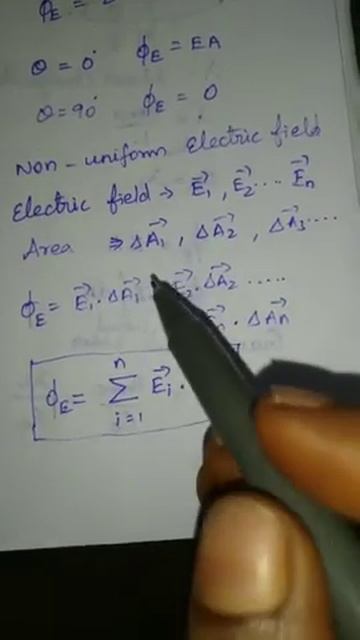 ϕ_E =
θ = 0° ϕ_E = EA
θ = 90° ϕ_E = 0
Non-uniform Electric field
Electric field → E⃗₁, E⃗₂ .... E⃗n
Area ⇒ ΔA⃗₁, ΔA⃗₂, ΔA⃗₃....
ϕ_E = E⃗₁. ΔA⃗₁ E⃗₂. ΔA⃗₂ .....
n. ΔA⃗n
ϕ_E = n∑i=1 E⃗ᵢ .